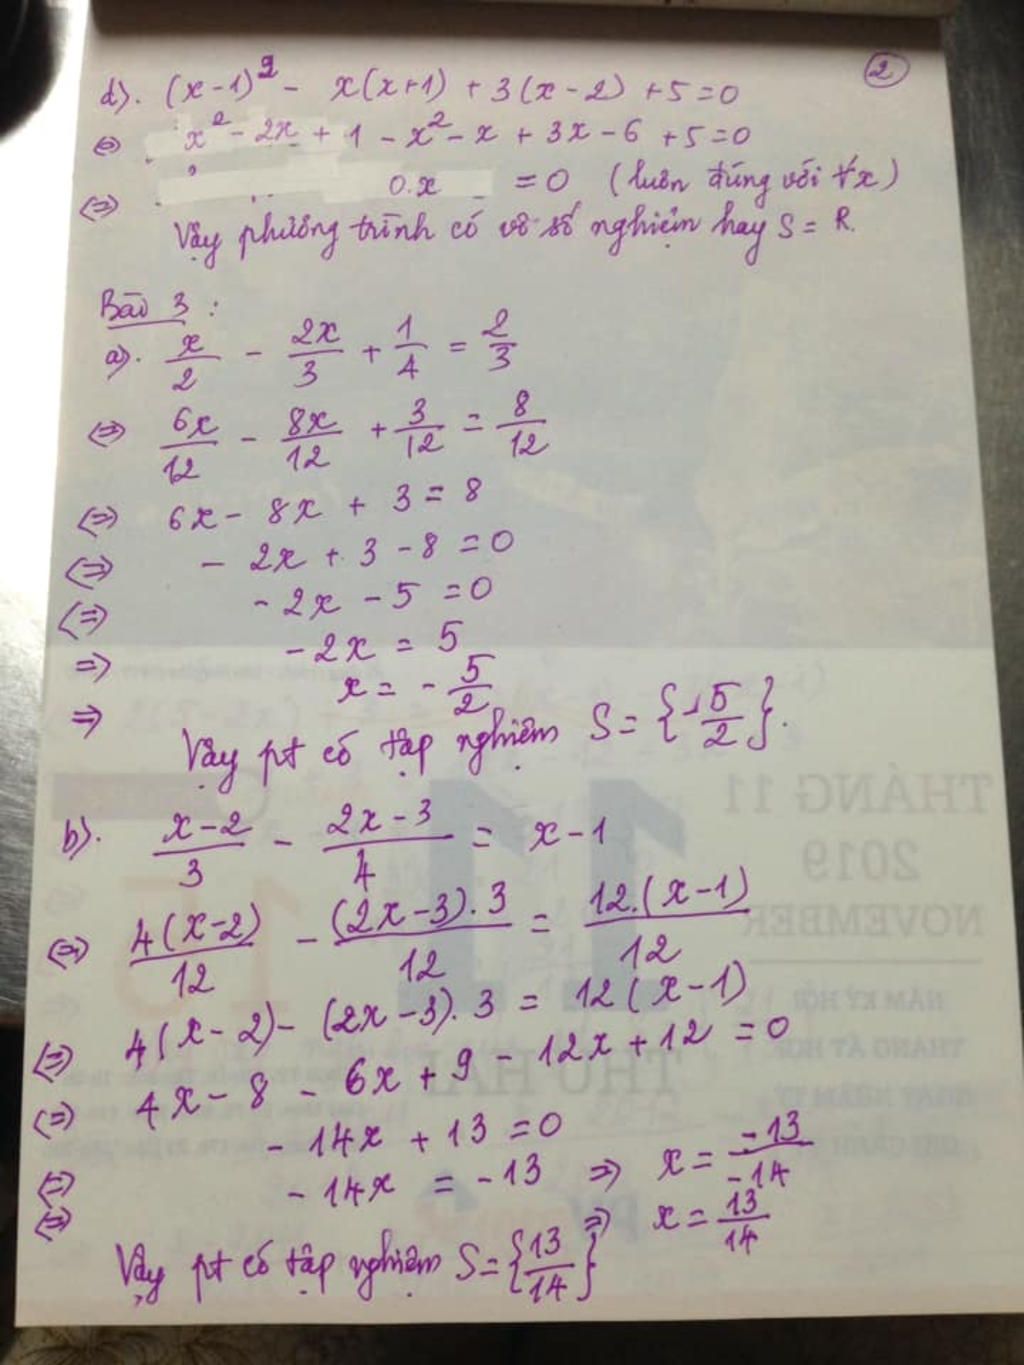 ②
d). (x-1)² - x(x+1) + 3(x-2) +5=0
⇔ x² - 2x + 1 - x² - x + 3x - 6 + 5 = 0
⇔ 0.x = 0 (luôn đúng với ∀x)
Vậy phương trình có vô số nghiệm hay S = R.
Bài 3 :
a). x/2 - 2x/3 + 1/4 = 2/3
⇔ 6x/12 - 8x/12 + 3/12 = 8/12
⇔ 6x - 8x + 3 = 8
⇔ - 2x + 3 - 8 = 0
⇔ - 2x - 5 = 0
⇒ - 2x = 5
⇒ x = - 5/2
Vậy pt có tập nghiệm S = {-5/2}.
b). x-2/3 - 2x-3/4 = x-1
⇔ 4(x-2)/12 - (2x-3).3/12 = 12.(x-1)/12
⇔ 4(x-2) - (2x-3).3 = 12(x-1)
⇔ 4x - 8 - 6x + 9 - 12x + 12 = 0
⇔ - 14x + 13 = 0
⇔ - 14x = - 13 ⇒ x = -13/-14
⇒ x = 13/14
Vậy pt có tập nghiệm S = {13/14}
THÁNG 11
2019
NOVEMBER
THỨ HAI